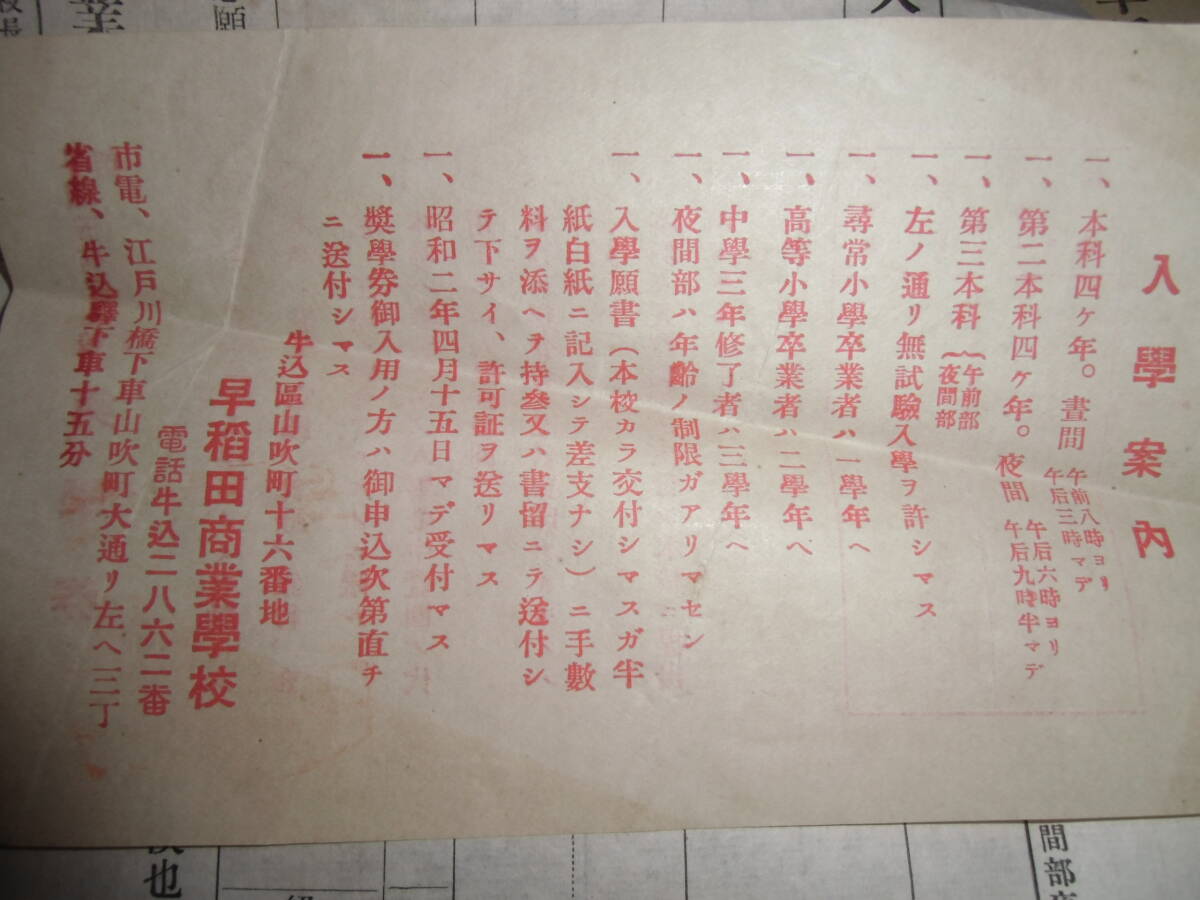 入學案內
一、本科四ケ年。晝間 午前八時ヨリ
午后三時マデ
一、第二本科四ケ年。夜間 午后六時ヨリ
午后九時半マデ
一、第三本科(午前部
(夜間部
一、左ノ通リ無試驗入學ヲ許シマス
一、尋常小學卒業者ハ一學年ヘ
一、高等小學卒業者ハ二學年ヘ
一、中學三年修了者ハ三學年ヘ
一、夜間部ハ年齡ノ制限ガアリマセン
一、入學願書(本校カラ交付シマスガ半
紙白紙ニ記入シテ差支ナシ)ニ手數
料ヲ添ヘヲ持參又ハ書留ニテ送付シ
テ下サイ、許可証ヲ送リマス
一、昭和二年四月十五日マデ受付マス
一、奬學劵御入用ノ方ハ御申込次第直チ
ニ送付シマス
牛込區山吹町十六番地
早稻田商業學校
電話牛込二八六二番
市電、江戸川橋下車山吹町大通リ左ヘ二丁
省線、牛込驛下車十五分
間部
也